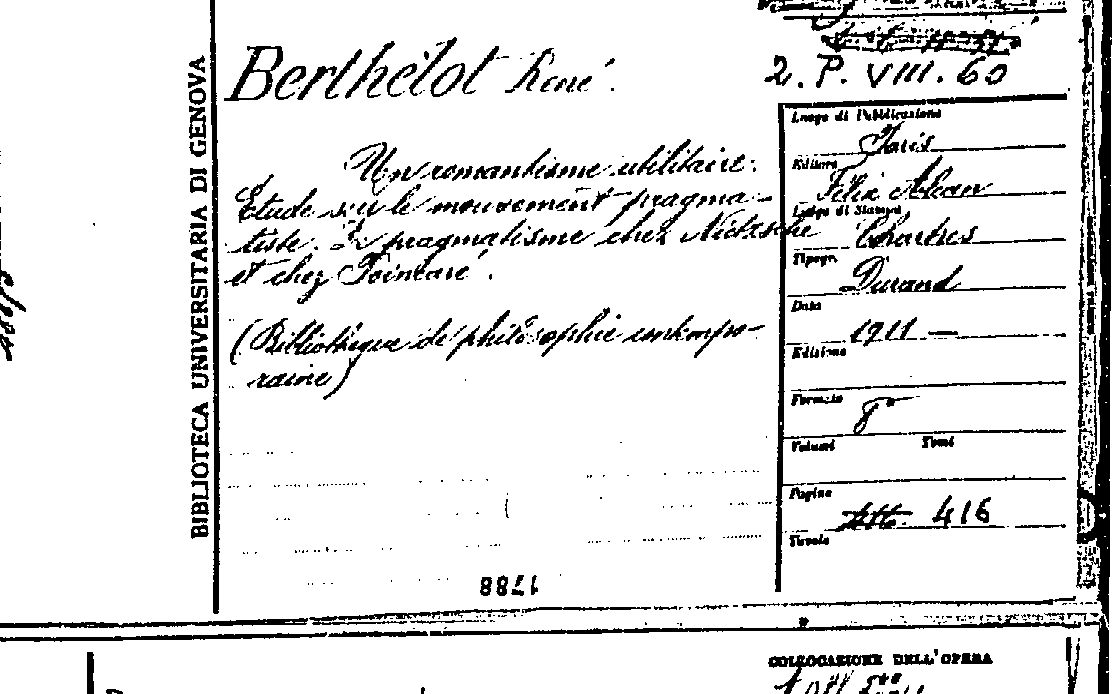 BIBLIOTECA UNIVERSITARIA DI GENOVA
Berthelot René.
2. P. VIII. 60
Un romantisme utilitaire.
Etude sur le mouvement pragma-
tiste. Le pragmatisme chez Nietzsche
et chez Poincaré.
(Bibliothèque de philosophie contempo-
raine)
Luogo di Pubblicazione
Paris
Editore
Félix Alcan
Luogo di Stampa
Chartres
Tipogr.
Durand
Data
1911 —
Edizione
Formato
8°
Volumi Tomi
Pagine
416
Tavole
COLLOCAZIONE DELL'OPERA